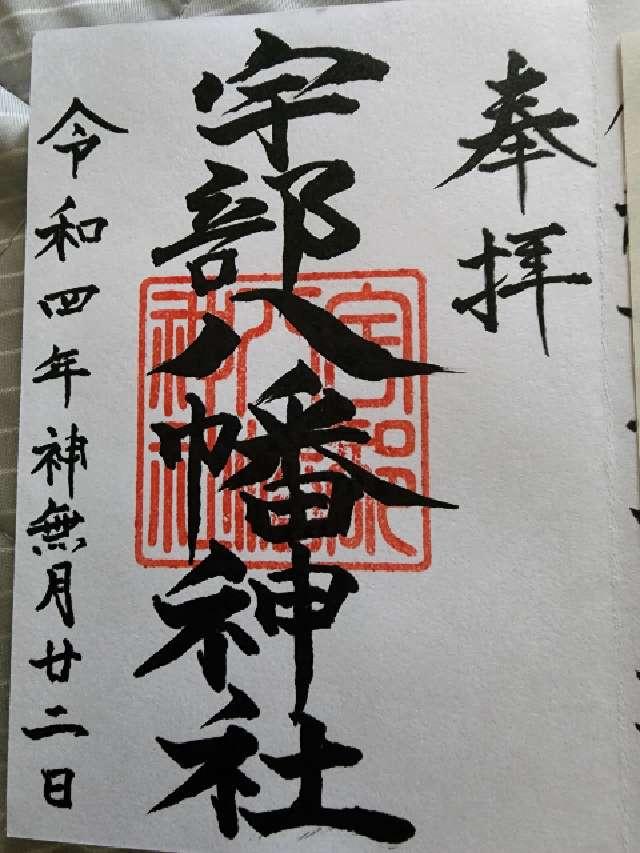 奉拝
宇部八幡神社
令和四年神無月廿二日
宇部八幡神社